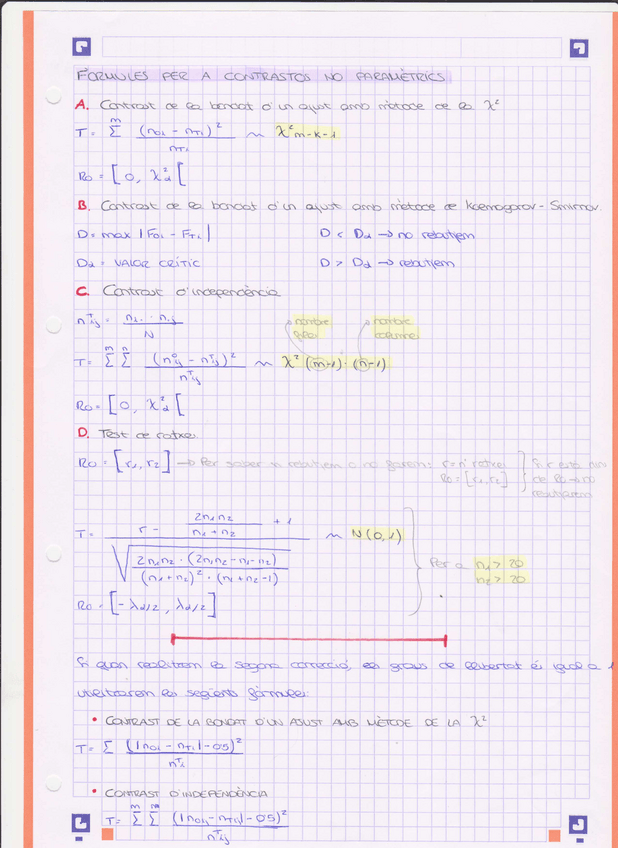 FÓRMULES PER A CONTRASTOS NO PARAMÈTRICS
A. Contrast de la bondat d'un ajust amb mètode de la χ²
T = Σ^m (n0i - nTi)² / nTi ~ χ² m-k-1
R0 = [0, χ²α[
B. Contrast de la bondat d'un ajust amb mètode de Kolmogorov - Smirnov.
D = max |F0i - FTi| D < Dα → no rebutjem
Dα = VALOR CRÍTIC D > Dα → rebutjem
C. Contrast d'independència
nᵀij = ni. · n.j / N nombre files nombre columnes
T = Σ^m Σ^n (n⁰ij - nᵀij)² / nᵀij ~ χ² (m-1) · (n-1)
R0 = [0, χ²α[
D. Test de ratxes
R0 = [r1, r2] → Per saber si rebutjem o no farem: r = nº ratxes
R0 = [r1, r2] Si r està dins de R0 → no rebutjarem
T = r - 2n1n2 / n1 + n2 + 1 / √(2n1n2 · (2n1n2 - n1 - n2) / (n1 + n2)² · (n1 + n2 - 1)) ~ N(0,1) Per a n1 > 20 n2 > 20
R0 = [-λα/2, λα/2]
Si quan realitzem la segona correcció, els graus de llibertat és igual a 1
utilitzarem les següents fórmules:
• CONTRAST DE LA BONDAT D'UN AJUST AMB MÈTODE DE LA χ²
T = Σ (|n0i - nTi| - 0'5)² / nᵀi
• CONTRAST D'INDEPENDÈNCIA
T = Σ^m Σ^m (|n0ij - nTij| - 0'5)² / nᵀij